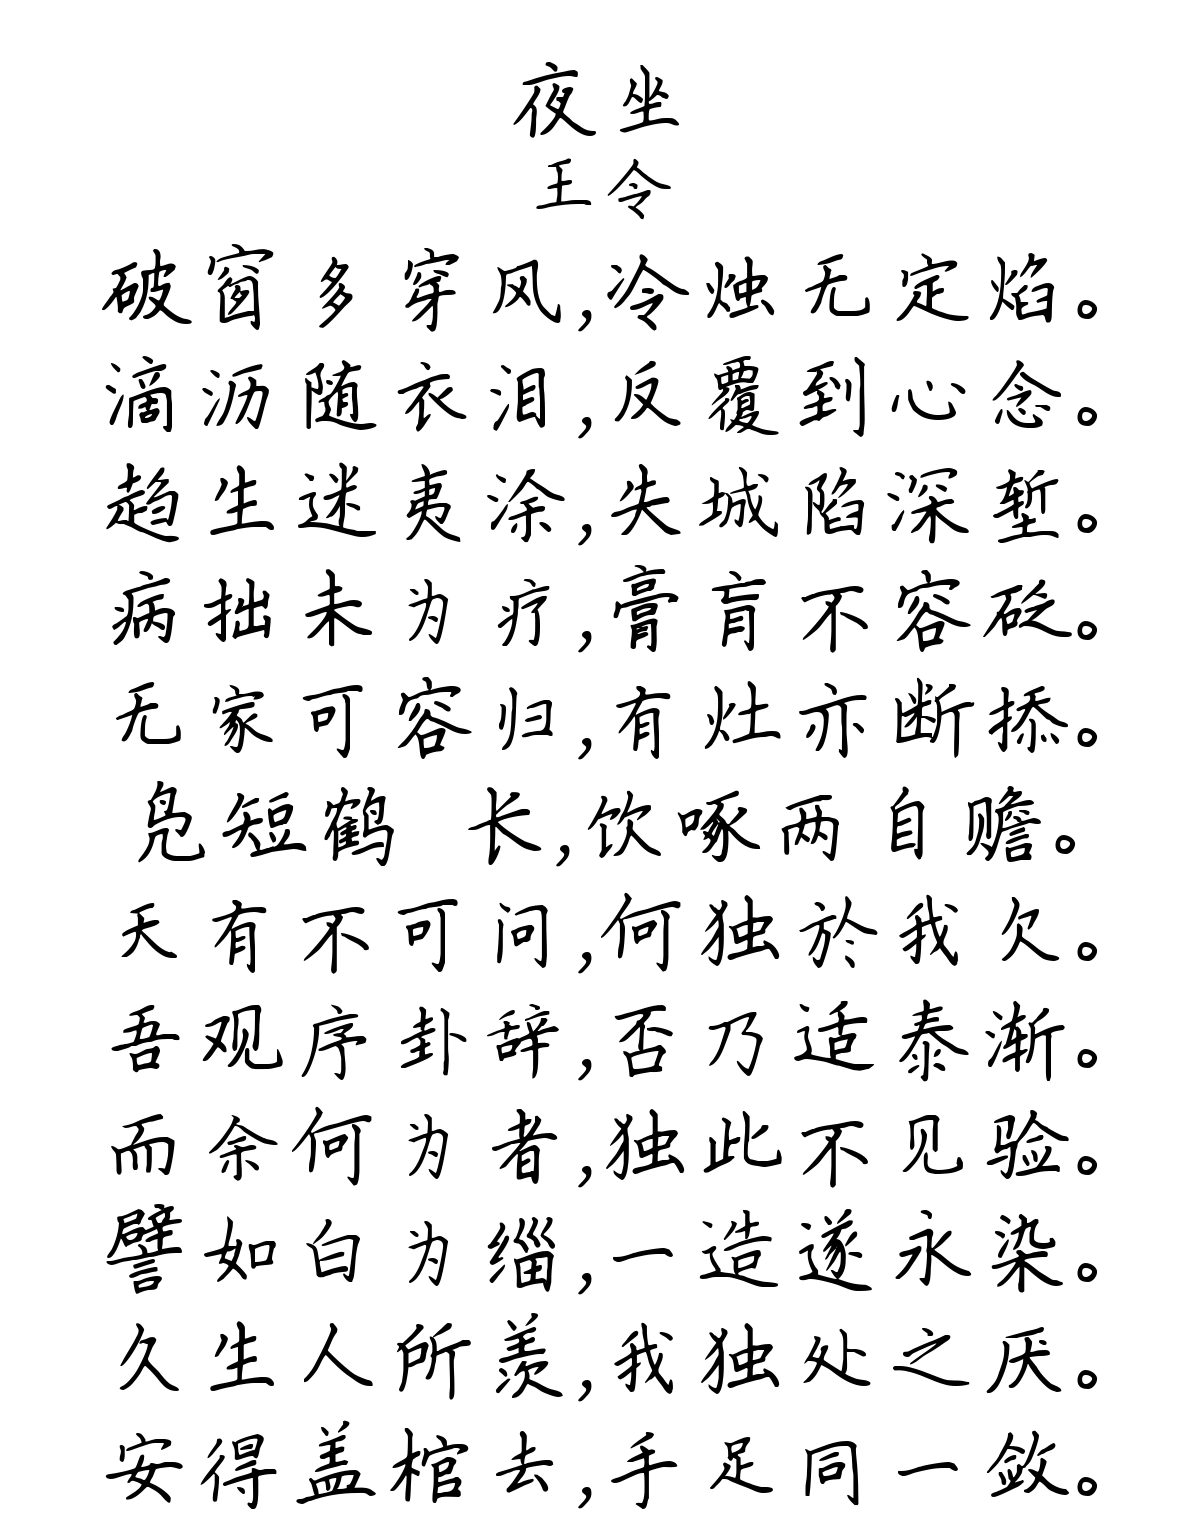 夜坐
王令
破窗多穿风,冷烛无定焰。
滴沥随衣泪,反覆到心念。
趋生迷夷涂,失城陷深堑。
病拙未为疗,膏肓不容砭。
无家可容归,有灶亦断掭。
凫短鹤 长,饮啄两自赡。
天有不可问,何独於我欠。
吾观序卦辞,否乃适泰渐。
而余何为者,独此不见验。
譬如白为缁,一造遂永染。
久生人所羡,我独处之厌。
安得盖棺去,手足同一敛。